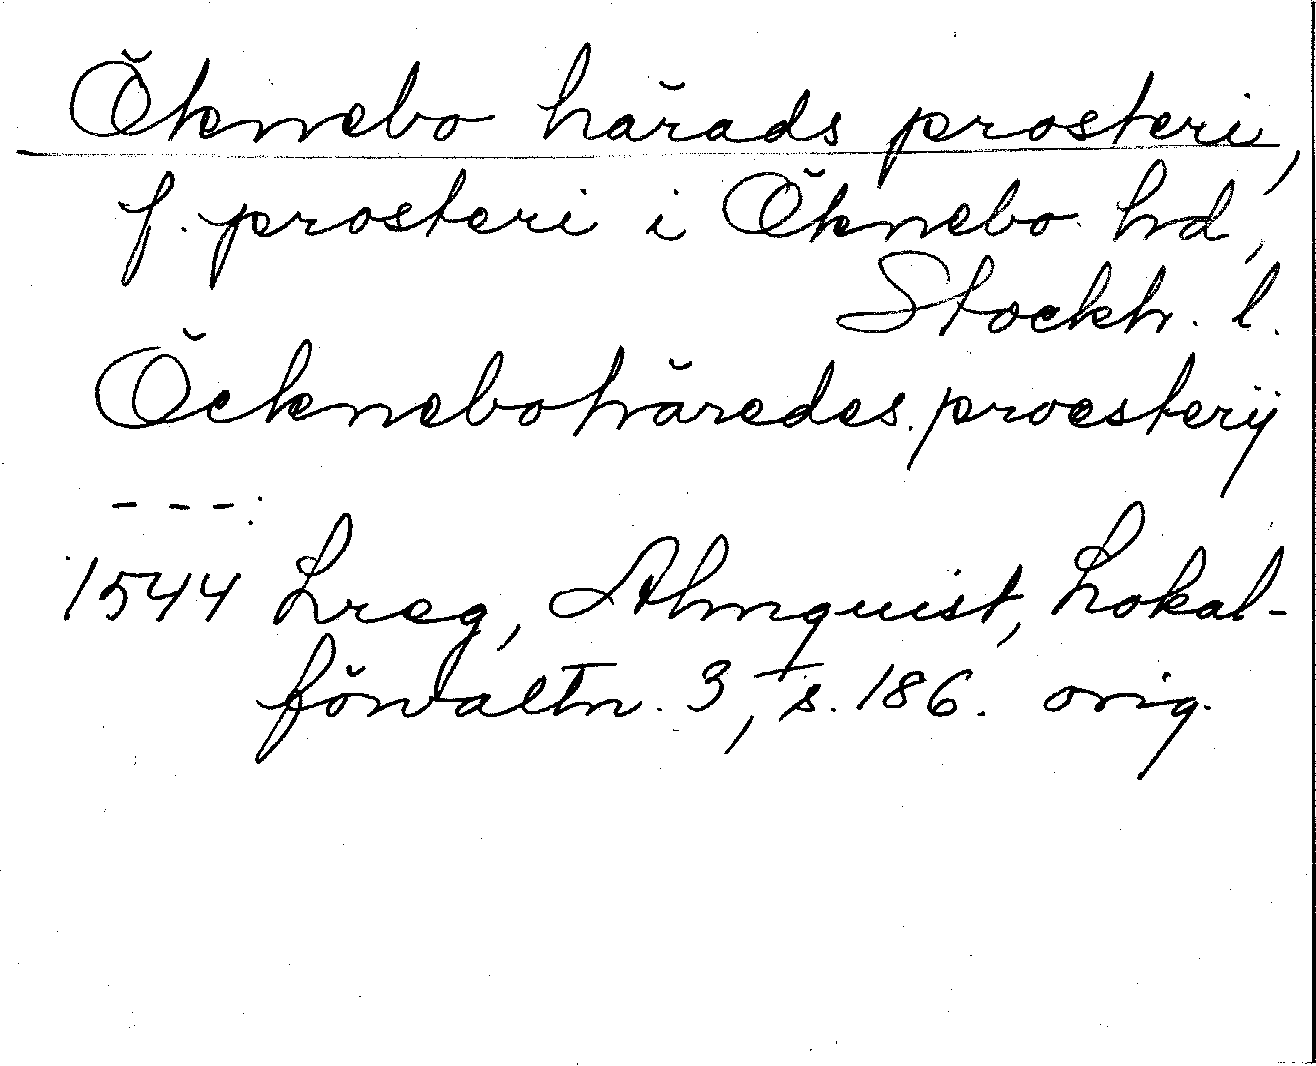 Öknebo härads prosteri,
f. prosteri i Öknebo hd,
Stockh. l.
Öcknebohäredes proesterij
- - - :
1544 Lreg, Almquist, Lokal-
förvaltn. 3, s. 186. orig.